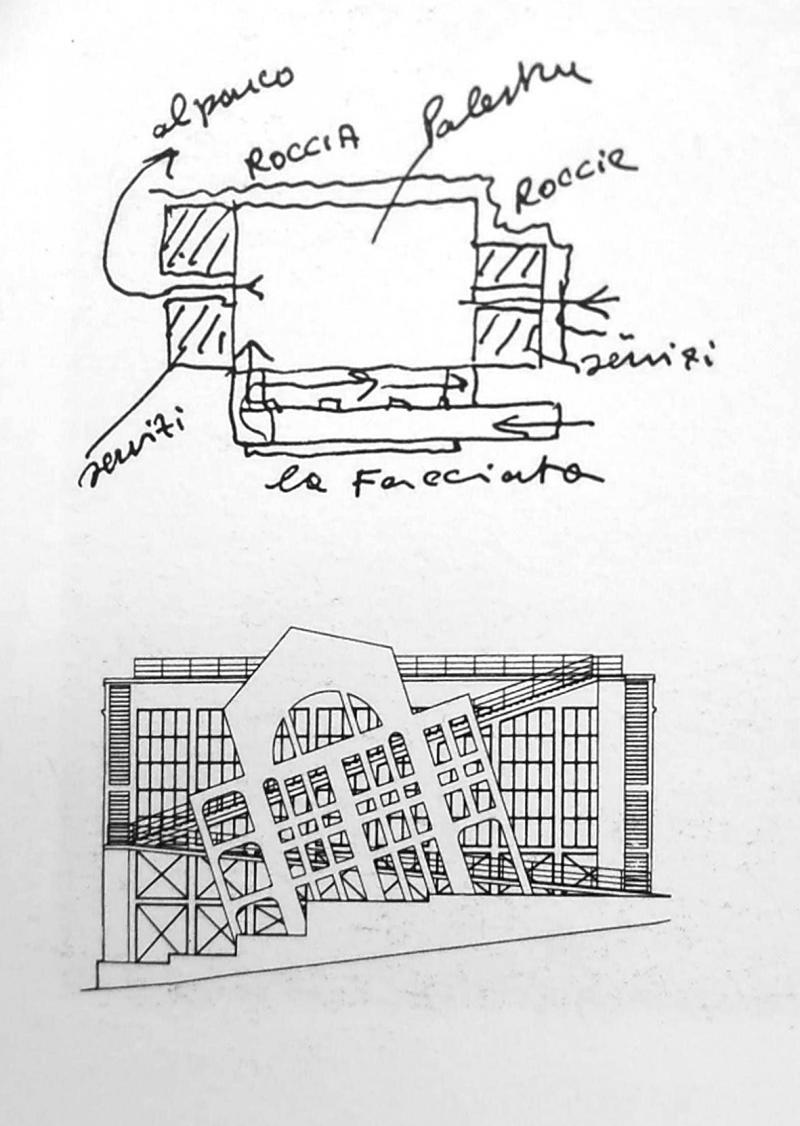 al parco
ROCCIA
Palestra
ROCCIE
servizi
servizi
la Facciata